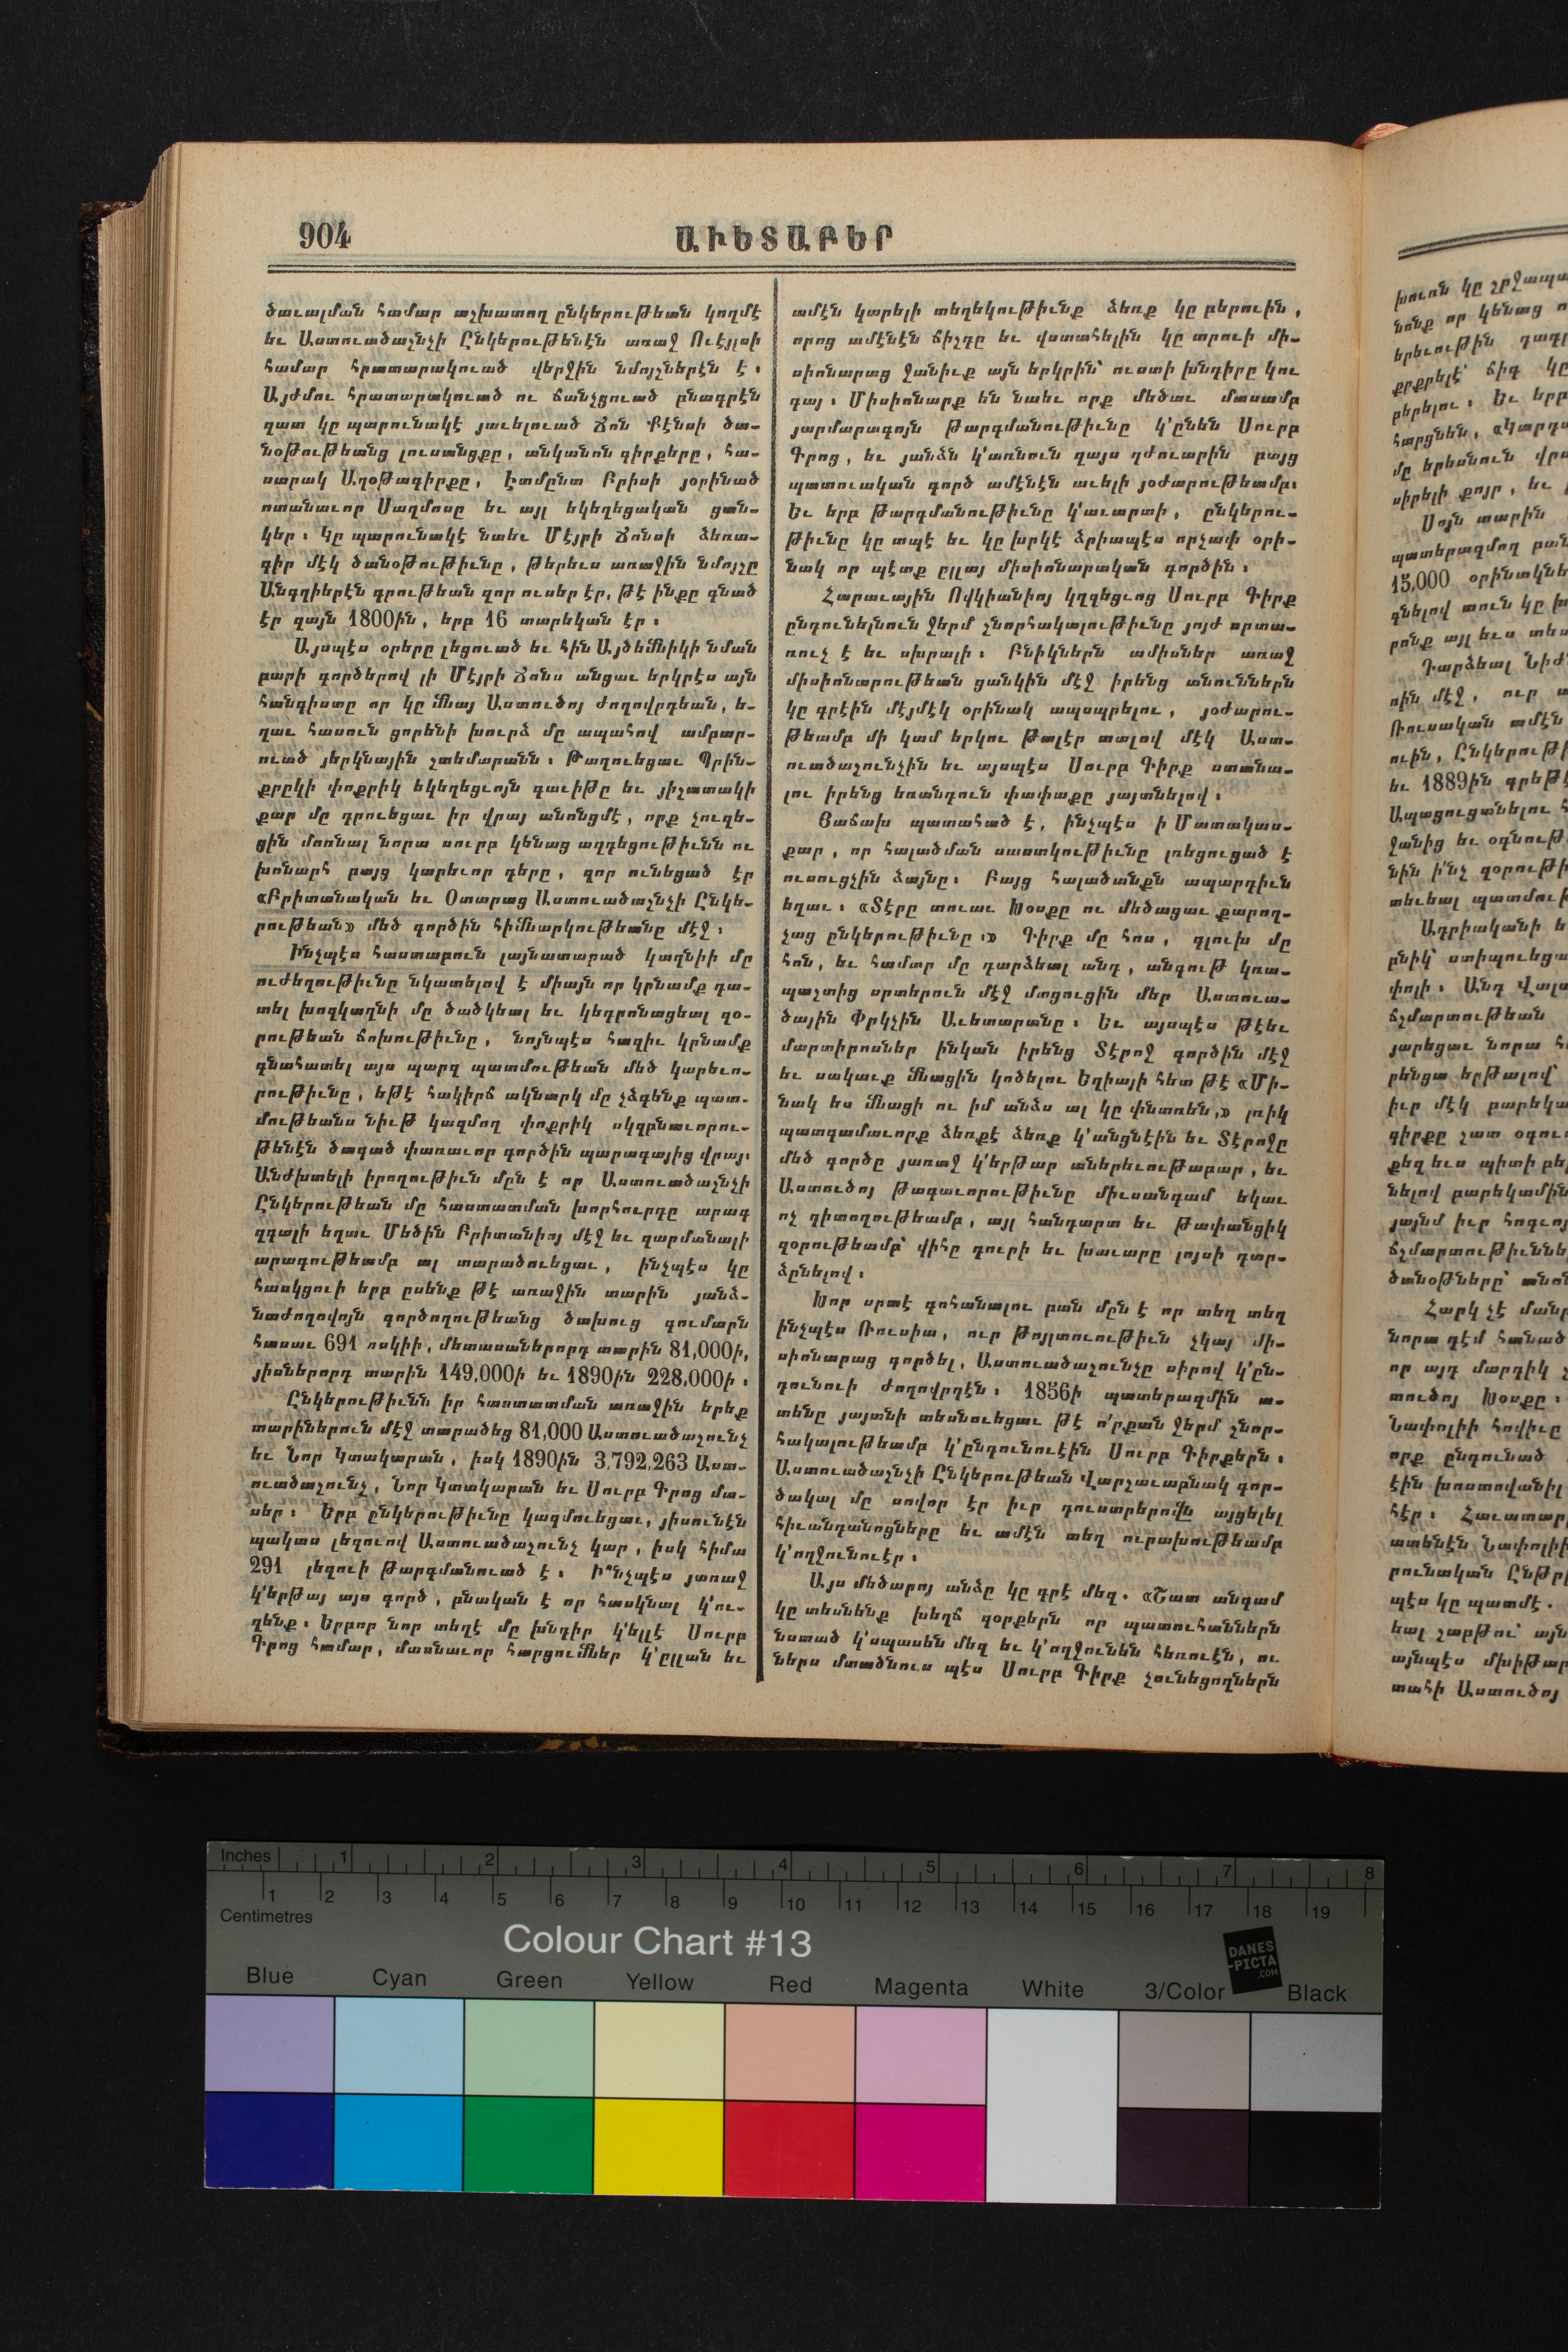 904
ԱՒԵՏԱԲԵՐ
ծաւալման համար աշխատող ընկերութեան կողմէ
եւ Աստուածաշնչի Ընկերութենէն առաջ Ուէյլսի
համար հրատարակուած վերջին նմոյշներէն է։
Այժմու հրատարակուած ու ճանչցուած բնագրէն
զատ կը պարունակէ յաւելուած Ճոն Քէնսի ծա-
նօթութեանց լուսանցքը, անկանոն գիրքերը, հա-
սարակ Աղօթագիրքը, Էտմընտ Բրիսի յօրինած
ոտանաւոր Սաղմոսը եւ այլ եկեղեցական ցան-
կեր։ Կը պարունակէ նաեւ Մէյրի Ճոնսի ձեռա-
գիր մէկ ծանօթութիւնը, թերեւս առաջին նմոյշը
Անգղիերէն գրութեան զոր ուսեր էր, թէ ինքը գնած
էր զայն 1800ին, երբ 16 տարեկան էր։
Այսպէս օրերը լեցուած եւ հին Այծեմնիկի նման
բարի գործերով լի Մէյրի Ճոնս անցաւ երկրէս այն
հանգիստը որ կը մնայ Աստուծոյ ժողովրդեան, ե-
ղաւ հասուն ցորենի խուրձ մը ապահով ամբար-
ուած յերկնային շտեմարանն։ Թաղուեցաւ Պրին-
քրըկի փոքրիկ եկեղեցւոյն գաւիթը եւ յիշատակի
քար մը դրուեցաւ իր վրայ անոնցմէ, որք չուզե-
ցին մոռնալ նորա սուրբ կենաց ազդեցութիւնն ու
խոնարհ բայց կարեւոր դերը, զոր ունեցած էր
«Բրիտանական եւ Օտարաց Աստուածաշնչի Ընկե-
րութեան» մեծ գործին հիմնարկութեանը մէջ։
Ինչպէս հաստաբուն լայնատարած կաղնիի մը
ուժեղութիւնը նկատելով է միայն որ կրնամք դա-
տել խոզկաղնի մը ծածկեալ եւ կեդրոնացեալ զօ-
րութեան ճոխութիւնը, նոյնպէս հազիւ կրնամք
գնահատել այս պարզ պատմութեան մեծ կարեւո-
րութիւնը, եթէ հակիրճ ակնարկ մը չձգենք պատ-
մութեանս նիւթ կազմող փոքրիկ սկզբնաւորու-
թենէն ծագած փառաւոր գործին պարագայից վրայ։
Անժխտելի իրողութիւն մըն է որ Աստուածաշնչի
Ընկերութեան մը հաստատման խորհուրդը արագ
զգալի եղաւ Մեծին Բրիտանիոյ մէջ եւ զարմանալի
արագութեամբ ալ տարածուեցաւ, ինչպէս կը
հասկցուի երբ ըսենք թէ առաջին տարին յանձ-
նաժողովոյն գործողութեանց ծախուց գումարն
հասաւ 691 ոսկիի, մետասաներորդ տարին 81,000ի,
յիսներորդ տարին 149,000ի եւ 1890ին 228,000ի։
Ընկերութիւնն իր հաստատման առաջին երեք
տարիներուն մէջ տարածեց 81,000 Աստուածաշունչ
եւ Նոր Կտակարան, իսկ 1890ին 3,792,263 Աստ-
ուածաշունչ, Նոր Կտակարան եւ Սուրբ Գրոց մա-
սեր։ Երբ ընկերութիւնը կազմուեցաւ, յիսունէն
պակաս լեզուով Աստուածաշունչ կար, իսկ հիմա
291 լեզուի թարգմանուած է։ Ի՞նչպէս յառաջ
կ'երթայ այս գործ, բնական է որ հասկնալ կ'ու-
զենք։ Երբոր նոր տեղէ մը խնդիր կ'ելլէ Սուրբ
Գրոց համար, մասնաւոր հարցումներ կ'ըլլան եւ
ամէն կարելի տեղեկութիւնք ձեռք կը բերուին,
որոց ամէնէն ճիշդը եւ վստահելին կը տրուի մի-
սիոնարաց ջանիւք այն երկրին՝ ուստի խնդիրը կու
գայ։ Միսիոնարք են նաեւ որք մեծաւ մասամբ
յարմարագոյն թարգմանութիւնը կ'ընեն Սուրբ
Գրոց, եւ յանձն կ'առնուն զայս դժուարին բայց
պատուական գործ ամէնէն աւելի յօժարութեամբ։
Եւ երբ թարգմանութիւնը կ'աւարտի, ընկերու-
թիւնը կը տպէ եւ կը խրկէ ձրիապէս որչափ օրի-
նակ որ պէտք ըլլայ միսիոնարական գործին։
Հարաւային Ովկիանիոյ կղզեցւոց Սուրբ Գիրք
ընդունելնուն ջերմ շնորհակալութիւնը յոյժ սրտա-
ռուչ է եւ սխրալի։ Բնիկներն ամիսներ առաջ
միսիոնարութեան ցանկին մէջ իրենց անուններն
կը գրէին մէյմէկ օրինակ ապսպրելու, յօժարու-
թեամբ մի կամ երկու թալէր տալով մէկ Աստ-
ուածաշունչին եւ այսպէս Սուրբ Գիրք ստանա-
լու իրենց եռանդուն փափաքը յայտնելով։
Յաճախ պատահած է, ինչպէս ի Մատակաս-
քար, որ հալածման սաստկութիւնը լռեցուցած է
ուսուցչին ձայնը։ Բայց հալածանքն ապարդիւն
եղաւ։ «Տէրը տուաւ Խօսքը ու մեծացաւ քարոզ-
չաց ընկերութիւնը։» Գիրք մը հոս, գլուխ մը
հոն, եւ համար մը դարձեալ անդ, անգութ կռա-
պաշտից սրտերուն մէջ մտցուցին մեր Աստուա-
ծային Փրկչին Աւետարանը։ Եւ այսպէս թէեւ
մարտիրոսներ ինկան իրենց Տէրոջ գործին մէջ
եւ սակաւք մնացին կոծելու Եղիայի հետ թէ «Մի-
նակ ես մնացի ու իմ անձս ալ կը փնտռեն,» լռիկ
պատգամաւորք ձեռքէ ձեռք կ'անցնէին եւ Տէրոջը
մեծ գործը յառաջ կ'երթար աներեւութաբար, եւ
Աստուծոյ թագաւորութիւնը միւսանգամ եկաւ
ոչ դիտողութեամբ, այլ հանդարտ եւ թափանցիկ
զօրութեամբ՝ վիհը դուրի եւ խաւարը լոյսի դար-
ձընելով։
Խոր սրտէ գոհանալու բան մըն է որ տեղ տեղ
ինչպէս Ռուսիա, ուր թոյլտուութիւն չկայ մի-
սիոնարաց գործել, Աստուածաշունչը սիրով կ'ըն-
դունուի ժողովրդէն։ 1856ի պատերազմին ա-
տենը յայտնի տեսնուեցաւ թէ ո՛րքան ջերմ շնոր-
հակալութեամբ կ'ընդունուէին Սուրբ Գիրքերն։
Աստուածաշնչի Ընկերութեան Վարշաւաբնակ գոր-
ծակալ մը սովոր էր իւր դուստրերովն այցելել
հիւանդանոցները եւ ամէն տեղ ուրախութեամբ
կ'ողջունուէր։
Այս մեծարոյ անձը կը գրէ մեզ. «Շատ անգամ
կը տեսնենք խեղճ զօրքերն որ պատուհաններն
նստած կ'սպասեն մեզ եւ կ'ողջունեն հեռուէն, ու
ներս մտածնուս պէս Սուրբ Գիրք չունեցողներն
խուռն կը
նոնք որ կենաց
երեւութին
քրքրելէ՝ ճիգ կը
բերելու։ Եւ երբ
հարցնեն,
մը երեսնուն
սիրելի քոյր, եւ
Սոյն տարին
պատերազմող
15,000 օրինակնե
գնելով տուն կը
րոնք այլ եւս
Դարձեալ
ին մէջ, ուր
Ռուսական ամէն
ուին, Ընկերութի
եւ 1889ին գրեթէ
Ապացուցանելու
ջանից եւ օգնութ
նին ի՛նչ զօրութի
տեւեալ պատմութ
Ադրիականի
բնիկ՝ ստիպուեցա
փոլի։ Անդ
ճշմարտութեան
յարեցաւ նորա
րենցա երթալով՝
իւր մէկ բարեկա
գիրքը շատ
քեզ եւս պիտի
նելով բարեկամին
յայնմ իւր հոգւոյ
ճշմարտութիւննե
ծանօթները՝
Հարկ չէ
նորա դէմ հանած
որ այդ մարդիկ
տուծոյ Խօսքը։
Նափոլիի հովիւը
որք ընդունած
էին խոստովանիլ
հէր։
ատենէն Նափոլիի
րունական
պէս կը պատմէ.
եալ շաբթու՝ այն
այնպէս մխիթար
տահի Աստուծոյ
Inches 1 2 3 4 5 6 7 8
1 2 3 4 5 6 7 8 9 10 11 12 13 14 15 16 17 18 19
Centimetres
Colour Chart #13
DANES
-PICTA
.COM
Blue Cyan Green Yellow Red Magenta White 3/Color Black